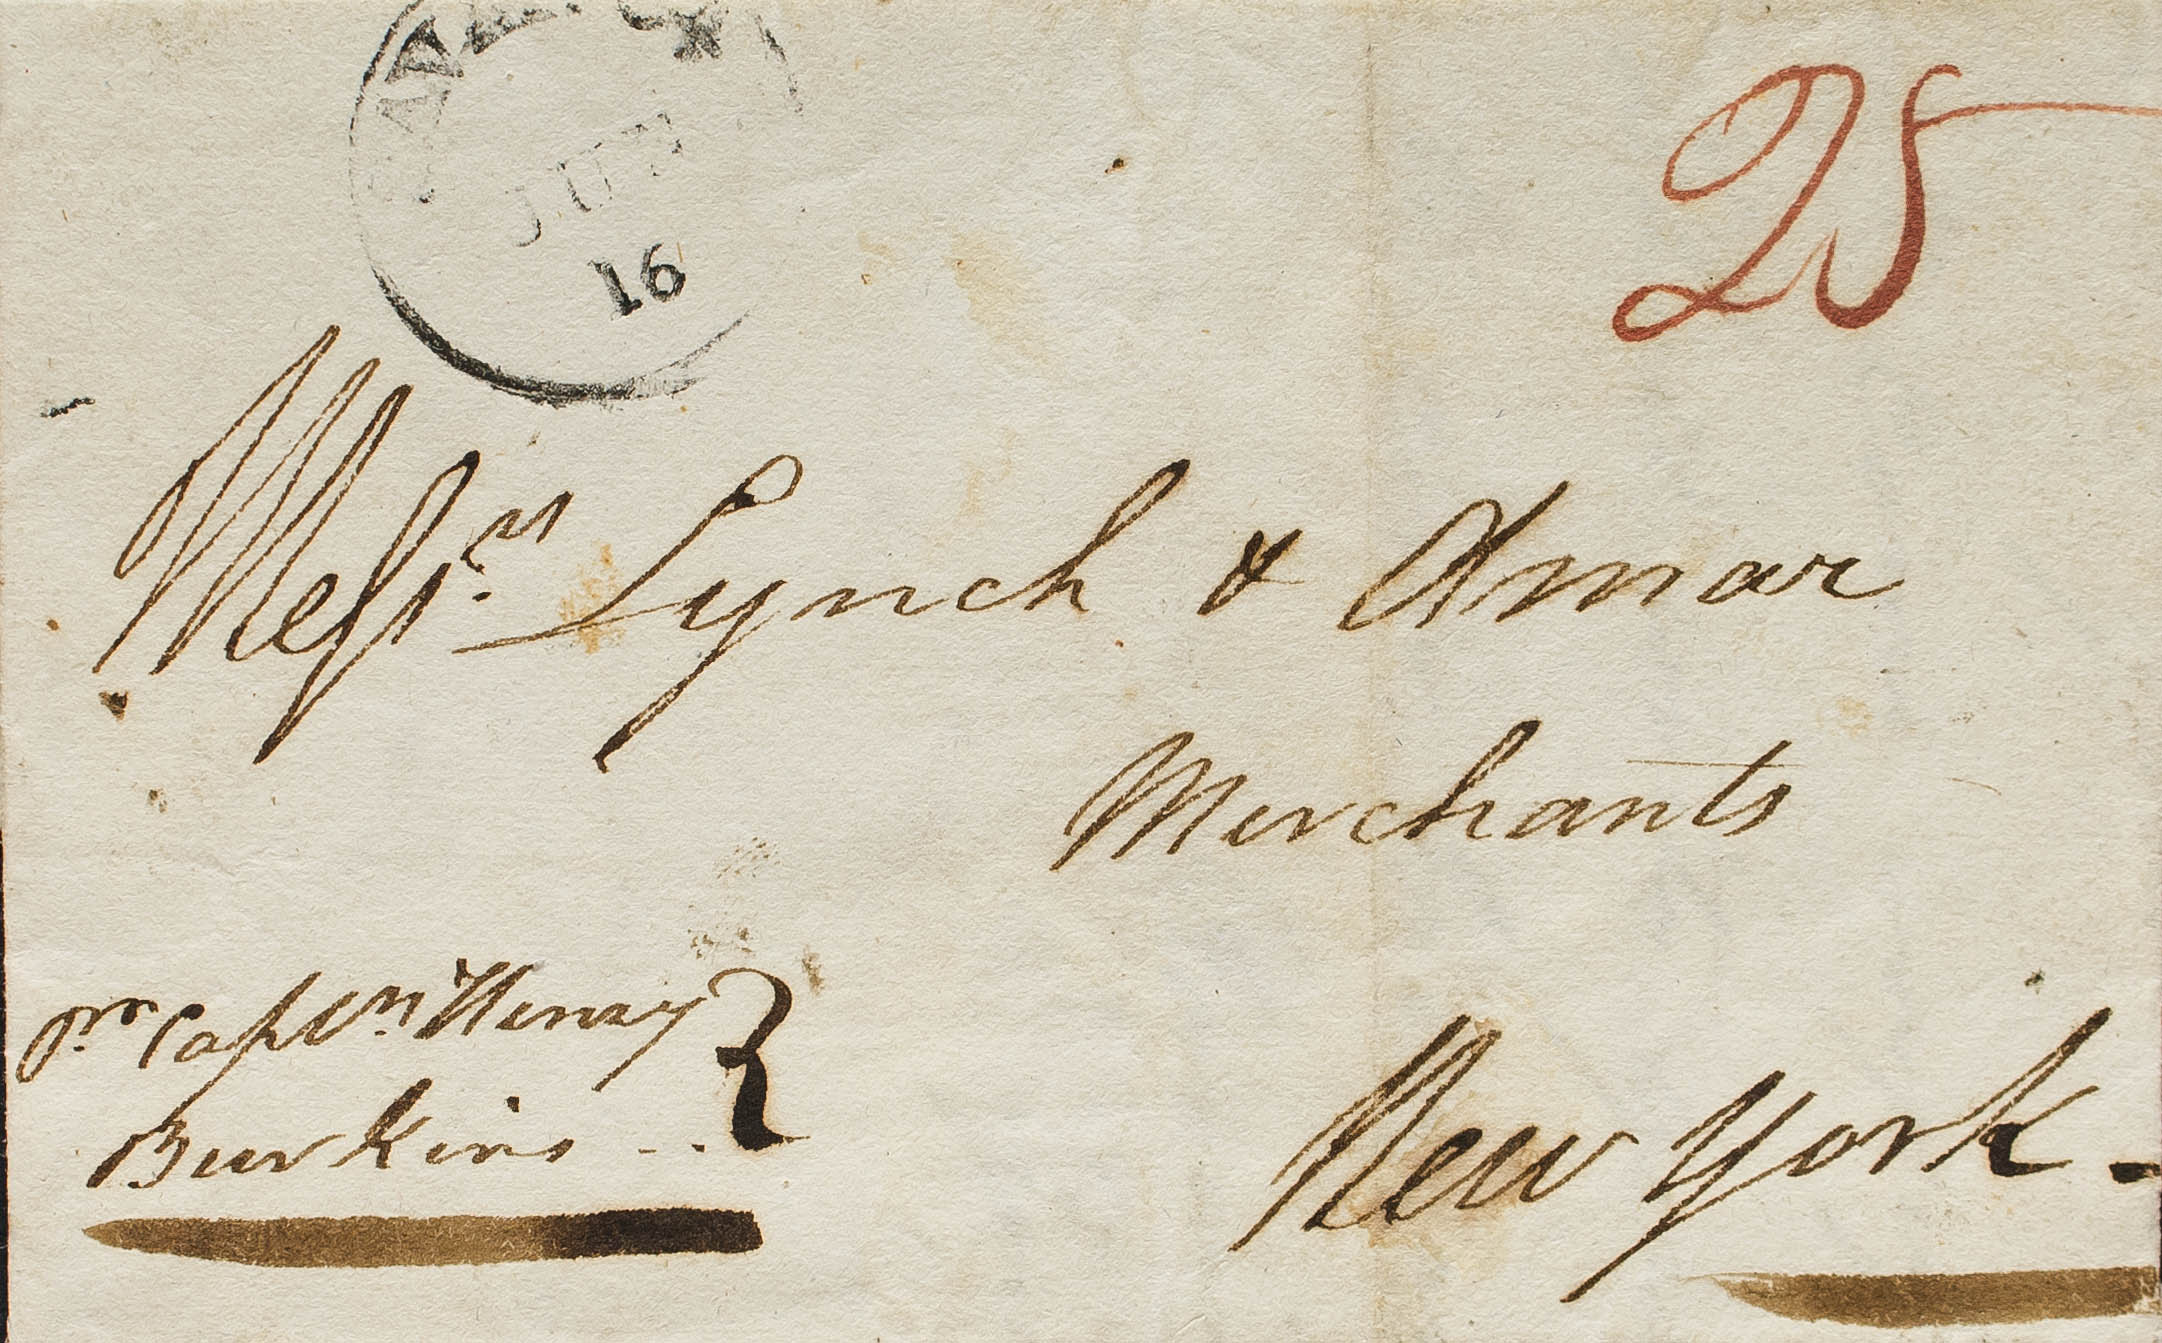 JUN
16
25
Messrs. Lynch & Aymar
Merchants
pr. Captn. Henry
Burkins
New York